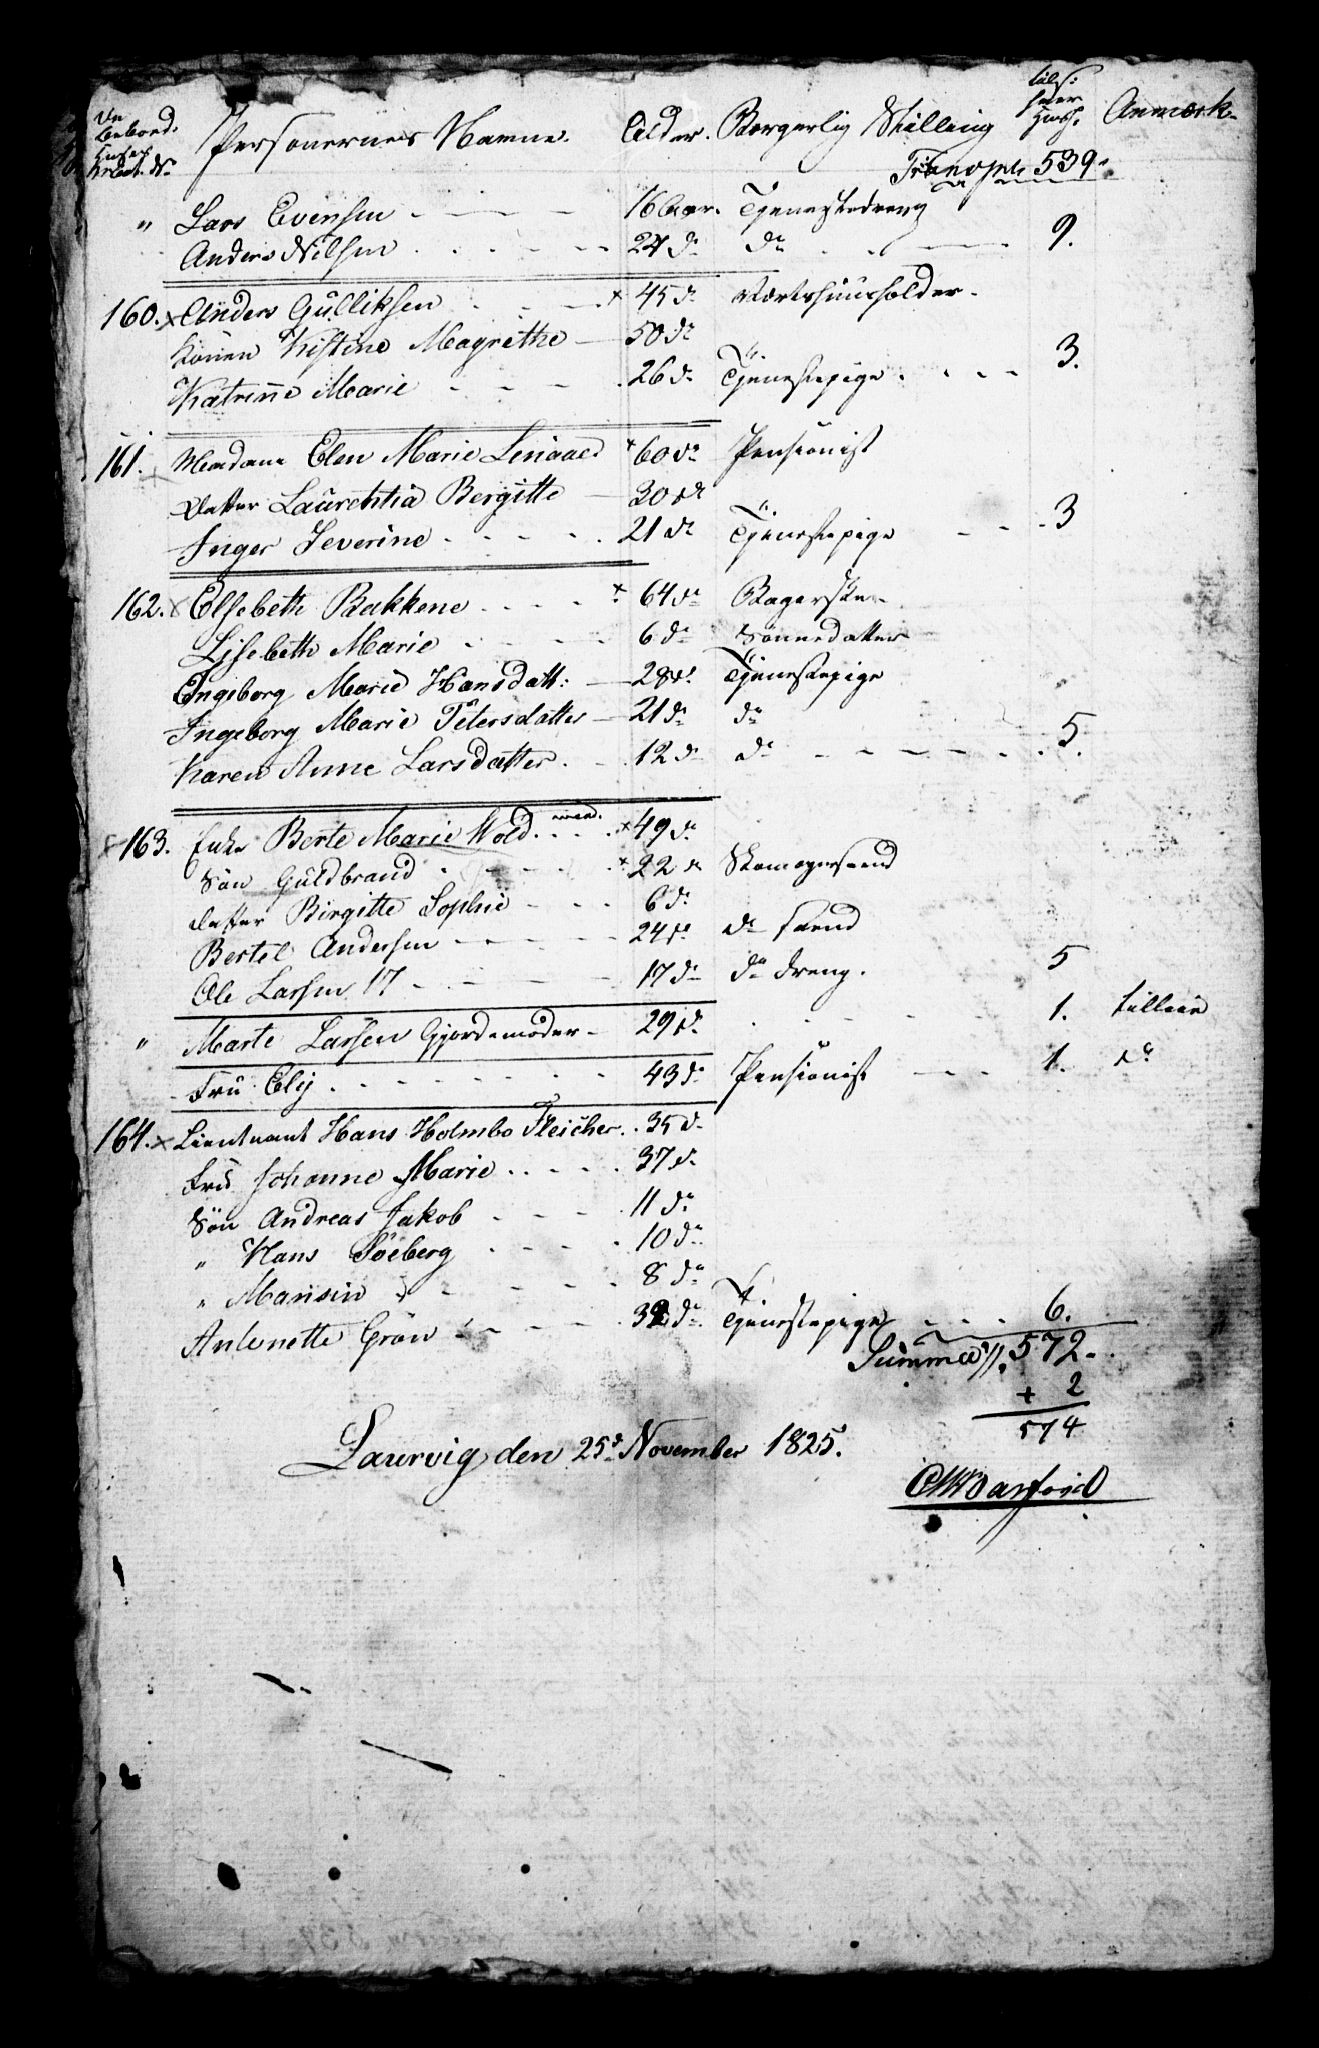 De beboed. Huses Mat. No Personernes Navne. Alder. Borgerlig Stilling hver Huus. Anmærk.
Transpt. 539.
" Lars Evensen 16 Aar. Tjenestedreng
Anders Nilsen 24 do do 9.
160. x Anders Gulliksen x 45 do Værtshuusholder.
Konen Kistine Magrethe 50 do "
Katrine Marie 26 do Tjenestepige 3.
161. Madame Elen Marie x 60 do Pensionist
Datter Laurentia Bergitte 30 do "
Inger Severine 21 do Tjenestepige 3
162. x Elsebeth Bakkene x 64 do Bagerske
Lisebeth Marie 6 do Sønnedatter
Engeborg Marie Hansdatt: 28 do Tjenestepige
Ingeborg Marie Petersdatter 21 do do
Karen Anne Larsdatter 12 do do 5.
163. Enke Berte Marie Wold x 49 do
Søn Guldbrand x 22 do Skomagersvend
Datter Birgitte Sophie 6 do
Bertel Andersen 24 do do svend
Ole Larsen 17 17 do do dreng. 5
" Marte Larsen Gjordemoder 29 do 1. tilleie
Fru Ely 43 do Pensionist 1. do
164. x Lieutnant Hans Holmbo Fleicher 35 do
Fru Johanne Marie 37 do
Søn Andreas Jakob 11 do
" Hans Søeberg 10 do
" Mansin 8 do
Antonette Grøn 32 do Tjenestepige 6.
Summa 572.
+ 2
574
Laurvig den 25d November 1825.